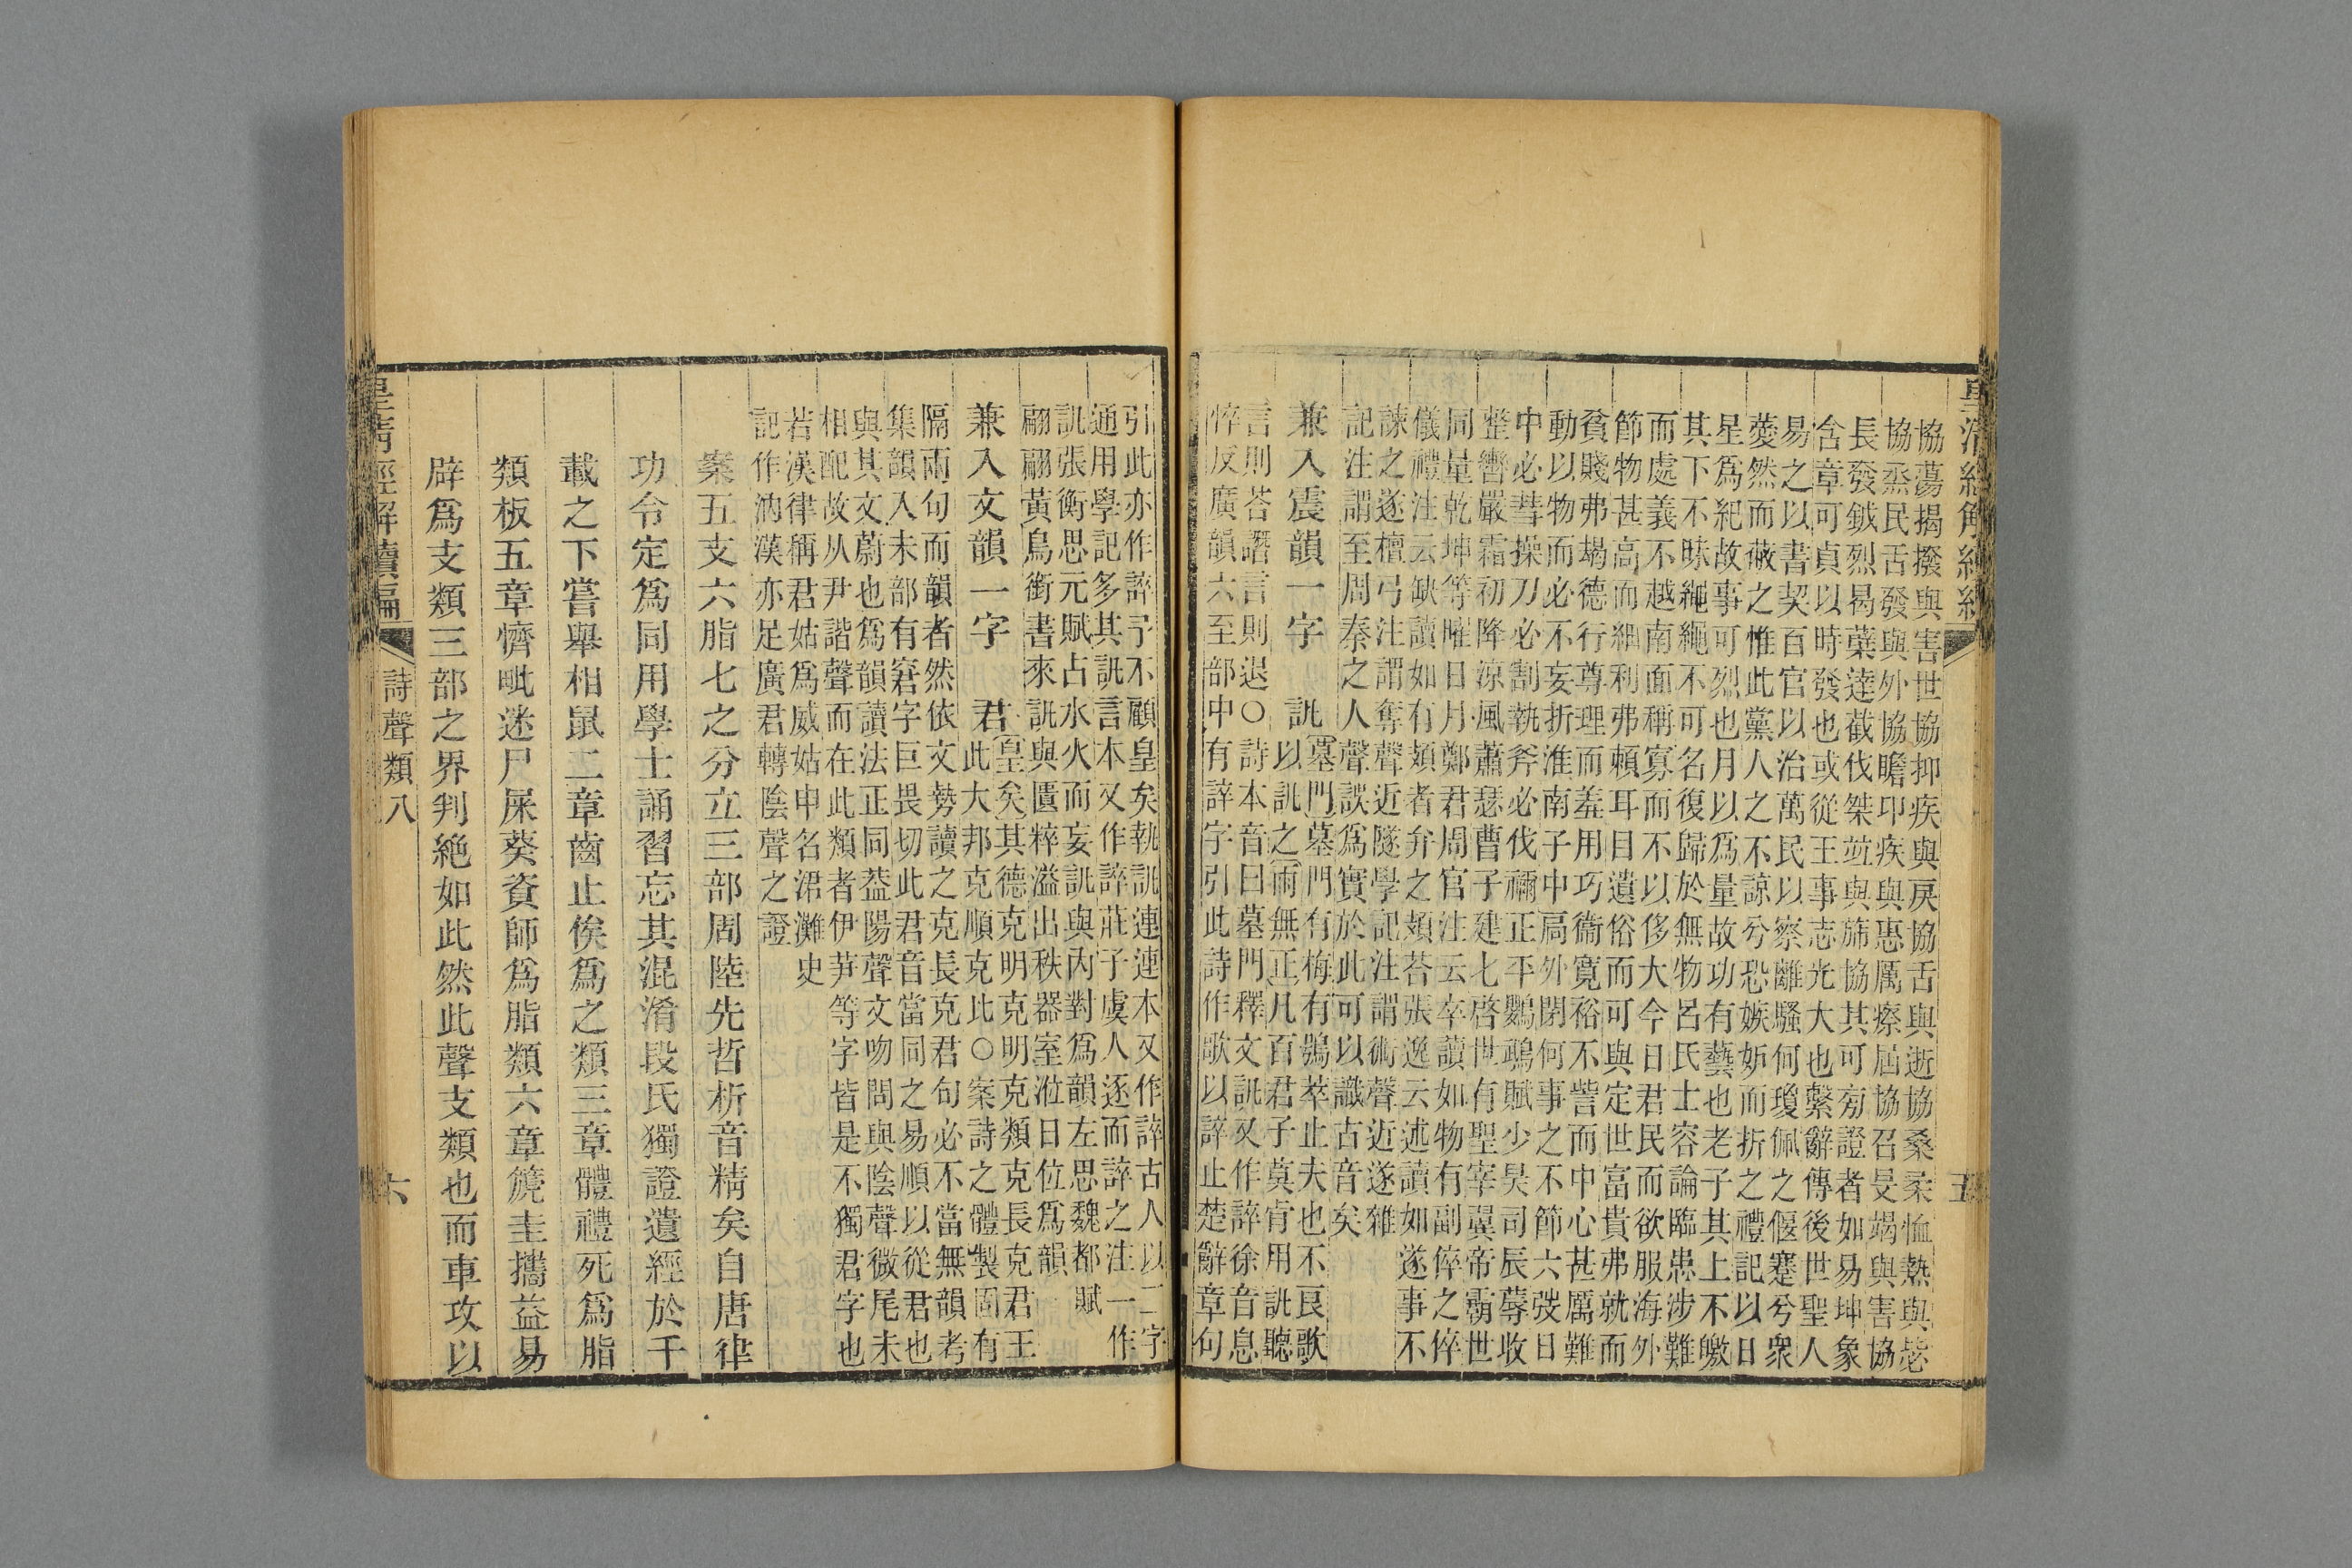 皇清經解續編
五
協蕩揭撥與害世協抑疾與戾協舌與逝協桑柔恤熱與毖
協烝民舌發與外協瞻卬疾與惠厲瘵屆協召旻竭與害協
長發鉞烈曷蘖達截伐桀竝與斾協其可㫄證者如易坤象
含章可貞以時發也或從王事志光大也繫辭傳後世聖人
易之以書契百官以治萬民以察離騷何瓊佩之偃蹇兮衆
薆然而蔽之惟此黨人之不諒兮恐嫉妒而折之禮記以日
星爲紀故事可烈也月以爲量故功有藝也老子其上不皦
其下不昧繩繩不可名復歸於無物呂氏士容論臨患涉難
而處義不越南面稱寡而不以侈大今日君民而欲服海外
節物甚高而細利弗賴耳目遺俗而可與定世富貴弗就而
貧賤弗朅德行尊理而羞用巧衞寬裕不訾而中心甚厲難
動以物而必不妄折淮南子中扃外閉何事之不節六弢日
中必彗操刀必割執斧必伐禰正平鸚鵡賦少昊司辰蓐收
整轡嚴霜初降涼風蕭瑟曹子建七啓世有聖宰翼帝霸世
同量乾坤等曜日月鄭君周官注云卒讀如物有副倅之倅
儀禮注云缺讀如有頍者弁之頍荅張逸云述讀如遂事不
諫之遂檀弓注謂奪聲近隧學記注謂術聲近遂雜
記注謂至周秦之人聲誤爲實於此可以識古音矣
兼入震韻一字
訙墓門墓門有梅有鴞萃止夫也不良歌
以訙之雨無正凡百君子莫肯用訙聽
言則荅譖言則退○詩本音曰墓門釋文訙又作誶徐音息
悴反廣韻六至部中有誶字引此詩作歌以誶止楚辭章句
引此亦作誶予不顧皇矣執訙連連本又作誶古人以二字
通用學記多其訙言本又作誶莊子虞人逐而誶之注一作
訙張衡思元賦占水火而妄訙與內對爲韻左思魏都賦
翩翩黃鳥銜書來訙與匱粹溢出秩器室涖日位爲韻
兼入文韻一字
君皇矣其德克明克明克類克長克君王
此大邦克順克比○案詩之體製固有
隔兩句而韻者然依文勢讀之克長克君句必不當無韻考
集韻入未部有窘字巨畏切此君音當同之易順以從君也
與其文蔚也爲韻讀法正同葢陽聲文吻問與陰聲微尾未
相配故从尹諧聲而在此類者伊笋等字皆是不獨君字也
若漢律稱君姑爲威姑申名涒灘史
記作汭漢亦足廣君轉陰聲之證
案五支六脂七之分立三部周陸先哲析音精矣自唐律
功令定爲同用學士誦習忘其混淆段氏獨證遺經於千
載之下嘗舉相鼠二章齒止俟爲之類三章體禮死爲脂
類板五章懠毗迷尸屎葵資師爲脂類六章篪圭攜益易
辟爲支類三部之界判絶如此然此聲支類也而車攻以
皇清經解續編
詩聲類八
六